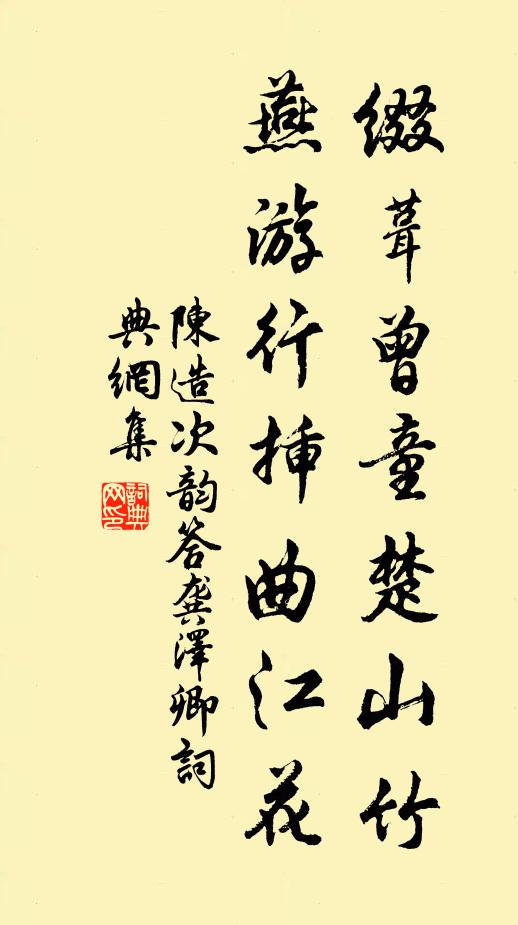 綴葺曾童楚山竹
燕游行插曲江花
陳造次韵答龔澤卿詞
典網集
詞典
网印